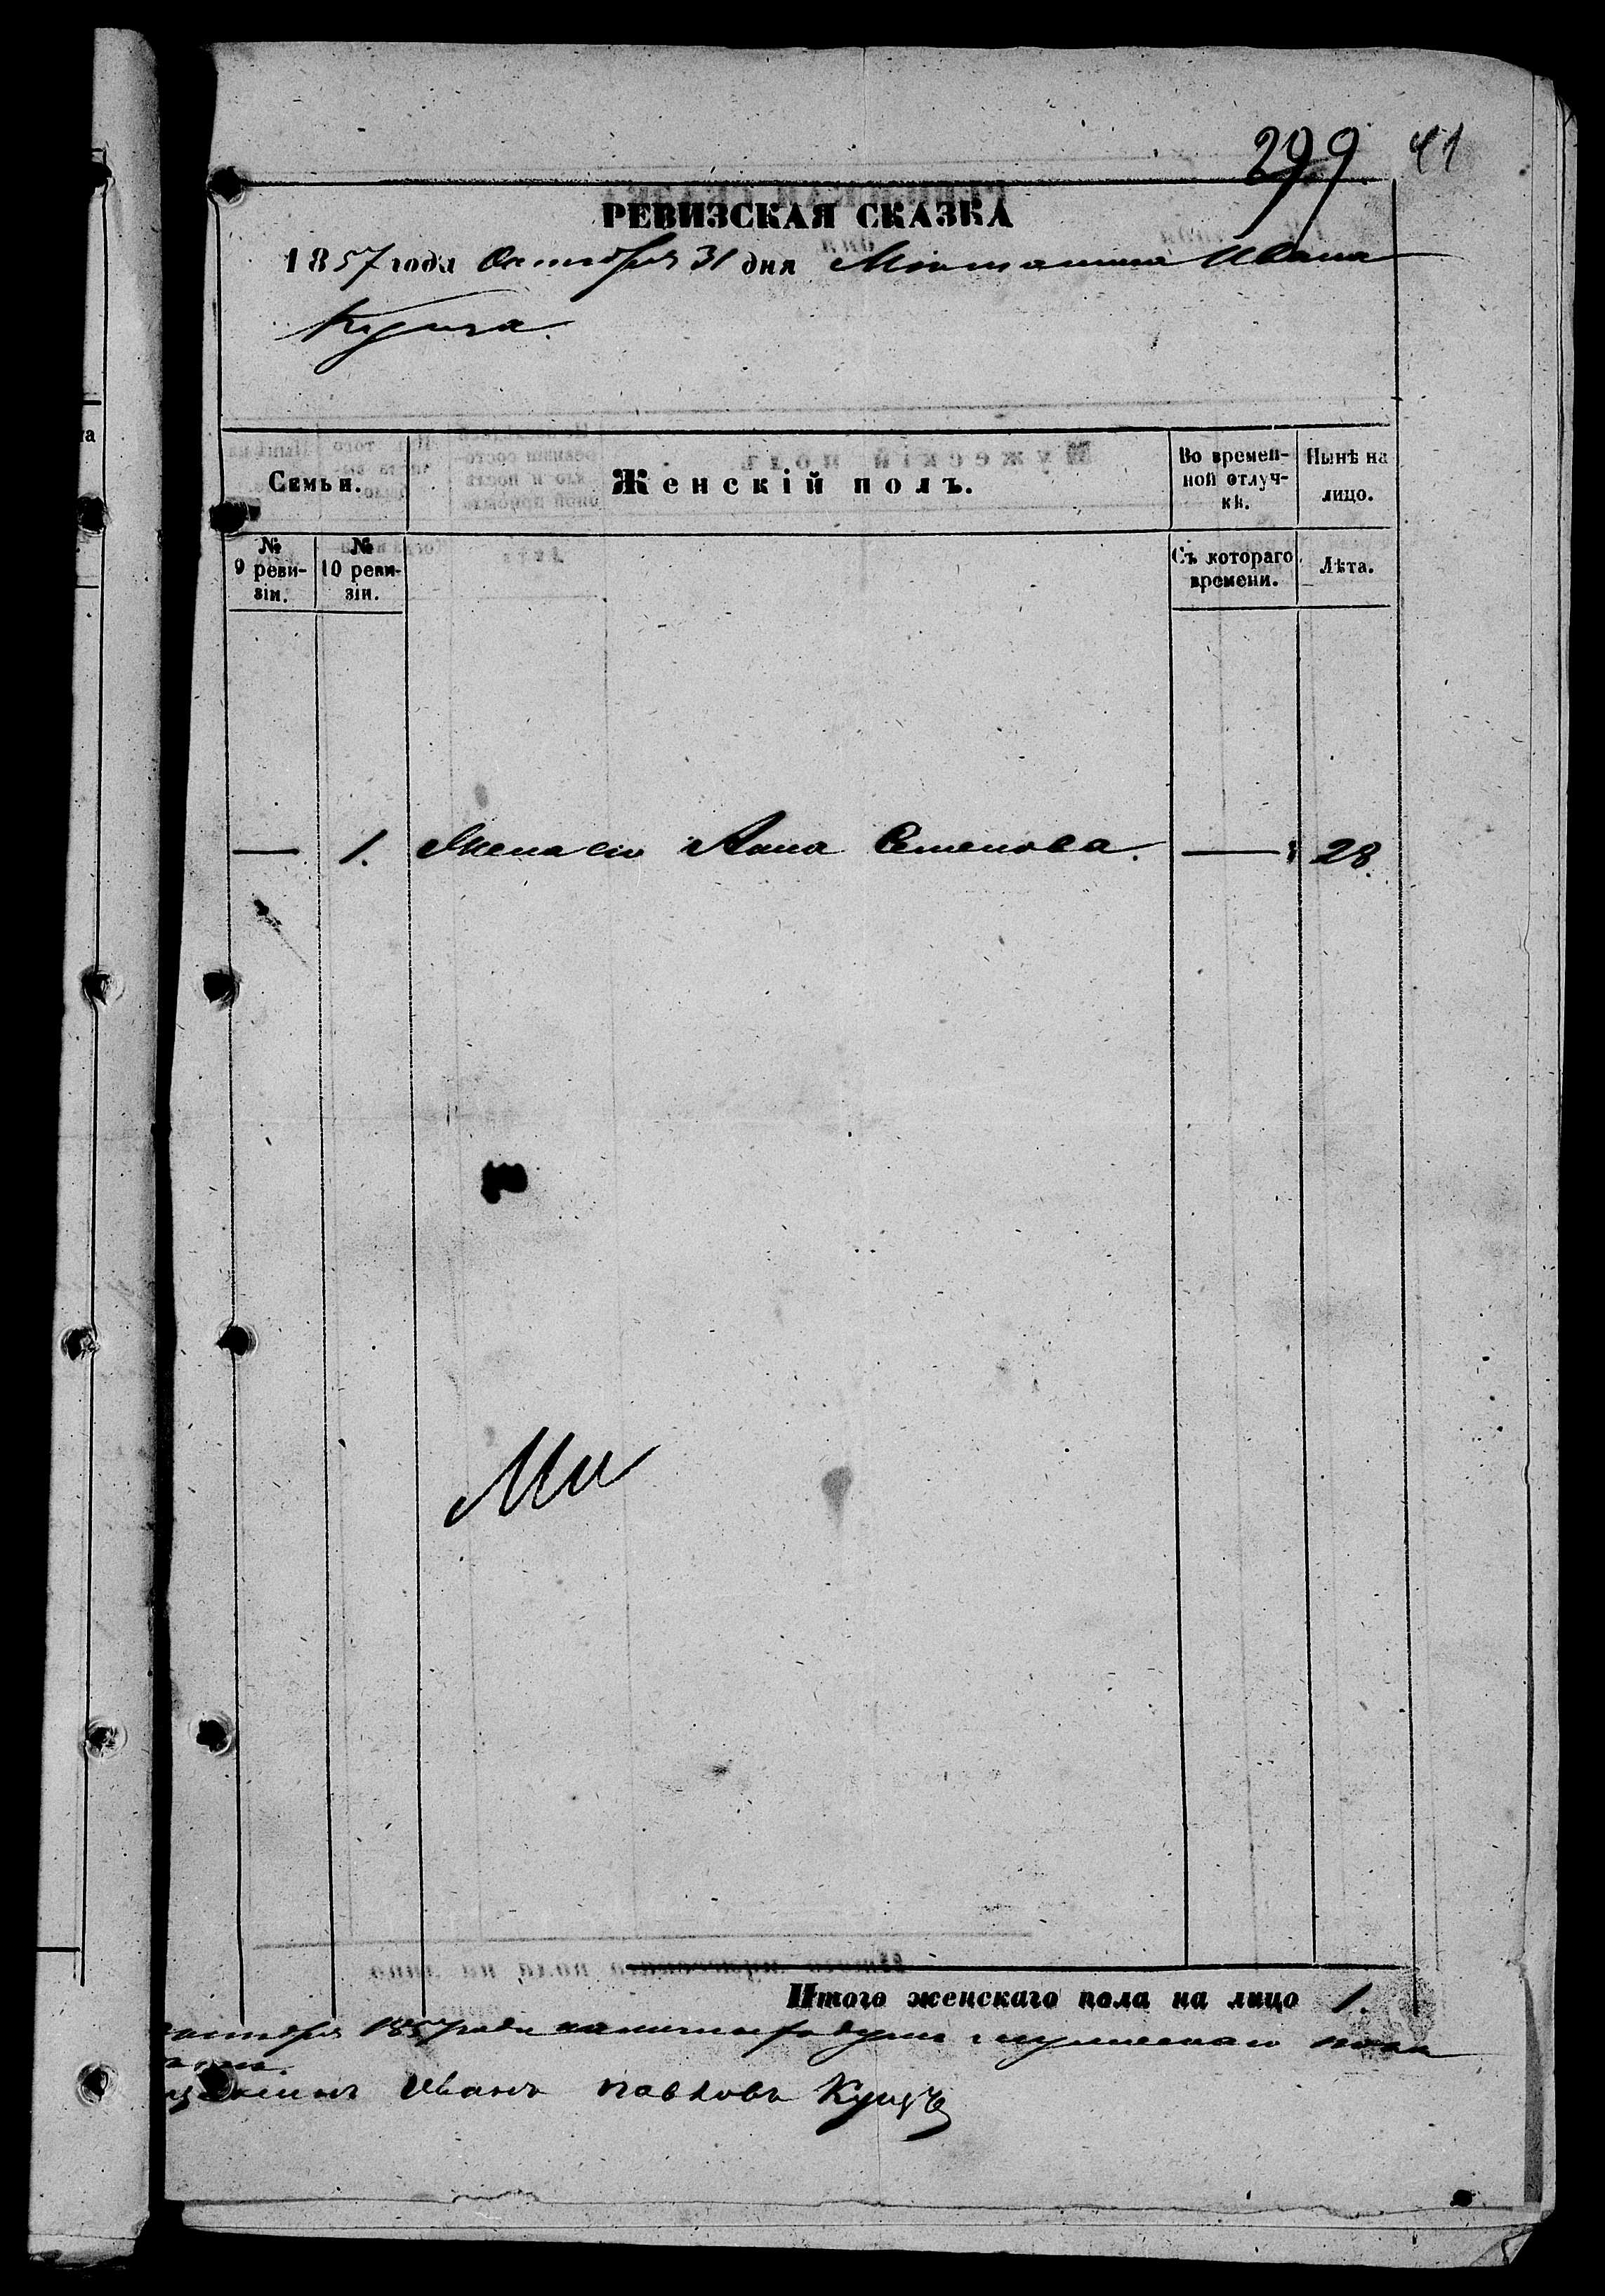 299 41
РЕВИЗСКАЯ СКАЗКА
1857 года Октября 31 дня Мѣщанина Ивана
Куцга.
Семьи.
Женскій полъ.
Во времен-
ной отлуч-
кѣ.
Нынѣ на
лицо.
№
9 реви-
зіи.
№
10 реви-
зіи.
Съ котораго
времени.
Лѣта.
— 1. Жена его Анна Семенова. — 28.
Итого женскаго пола на лицо 1.
октября 1857 года души мужескаго пола
Иванъ Павловъ Куцъ